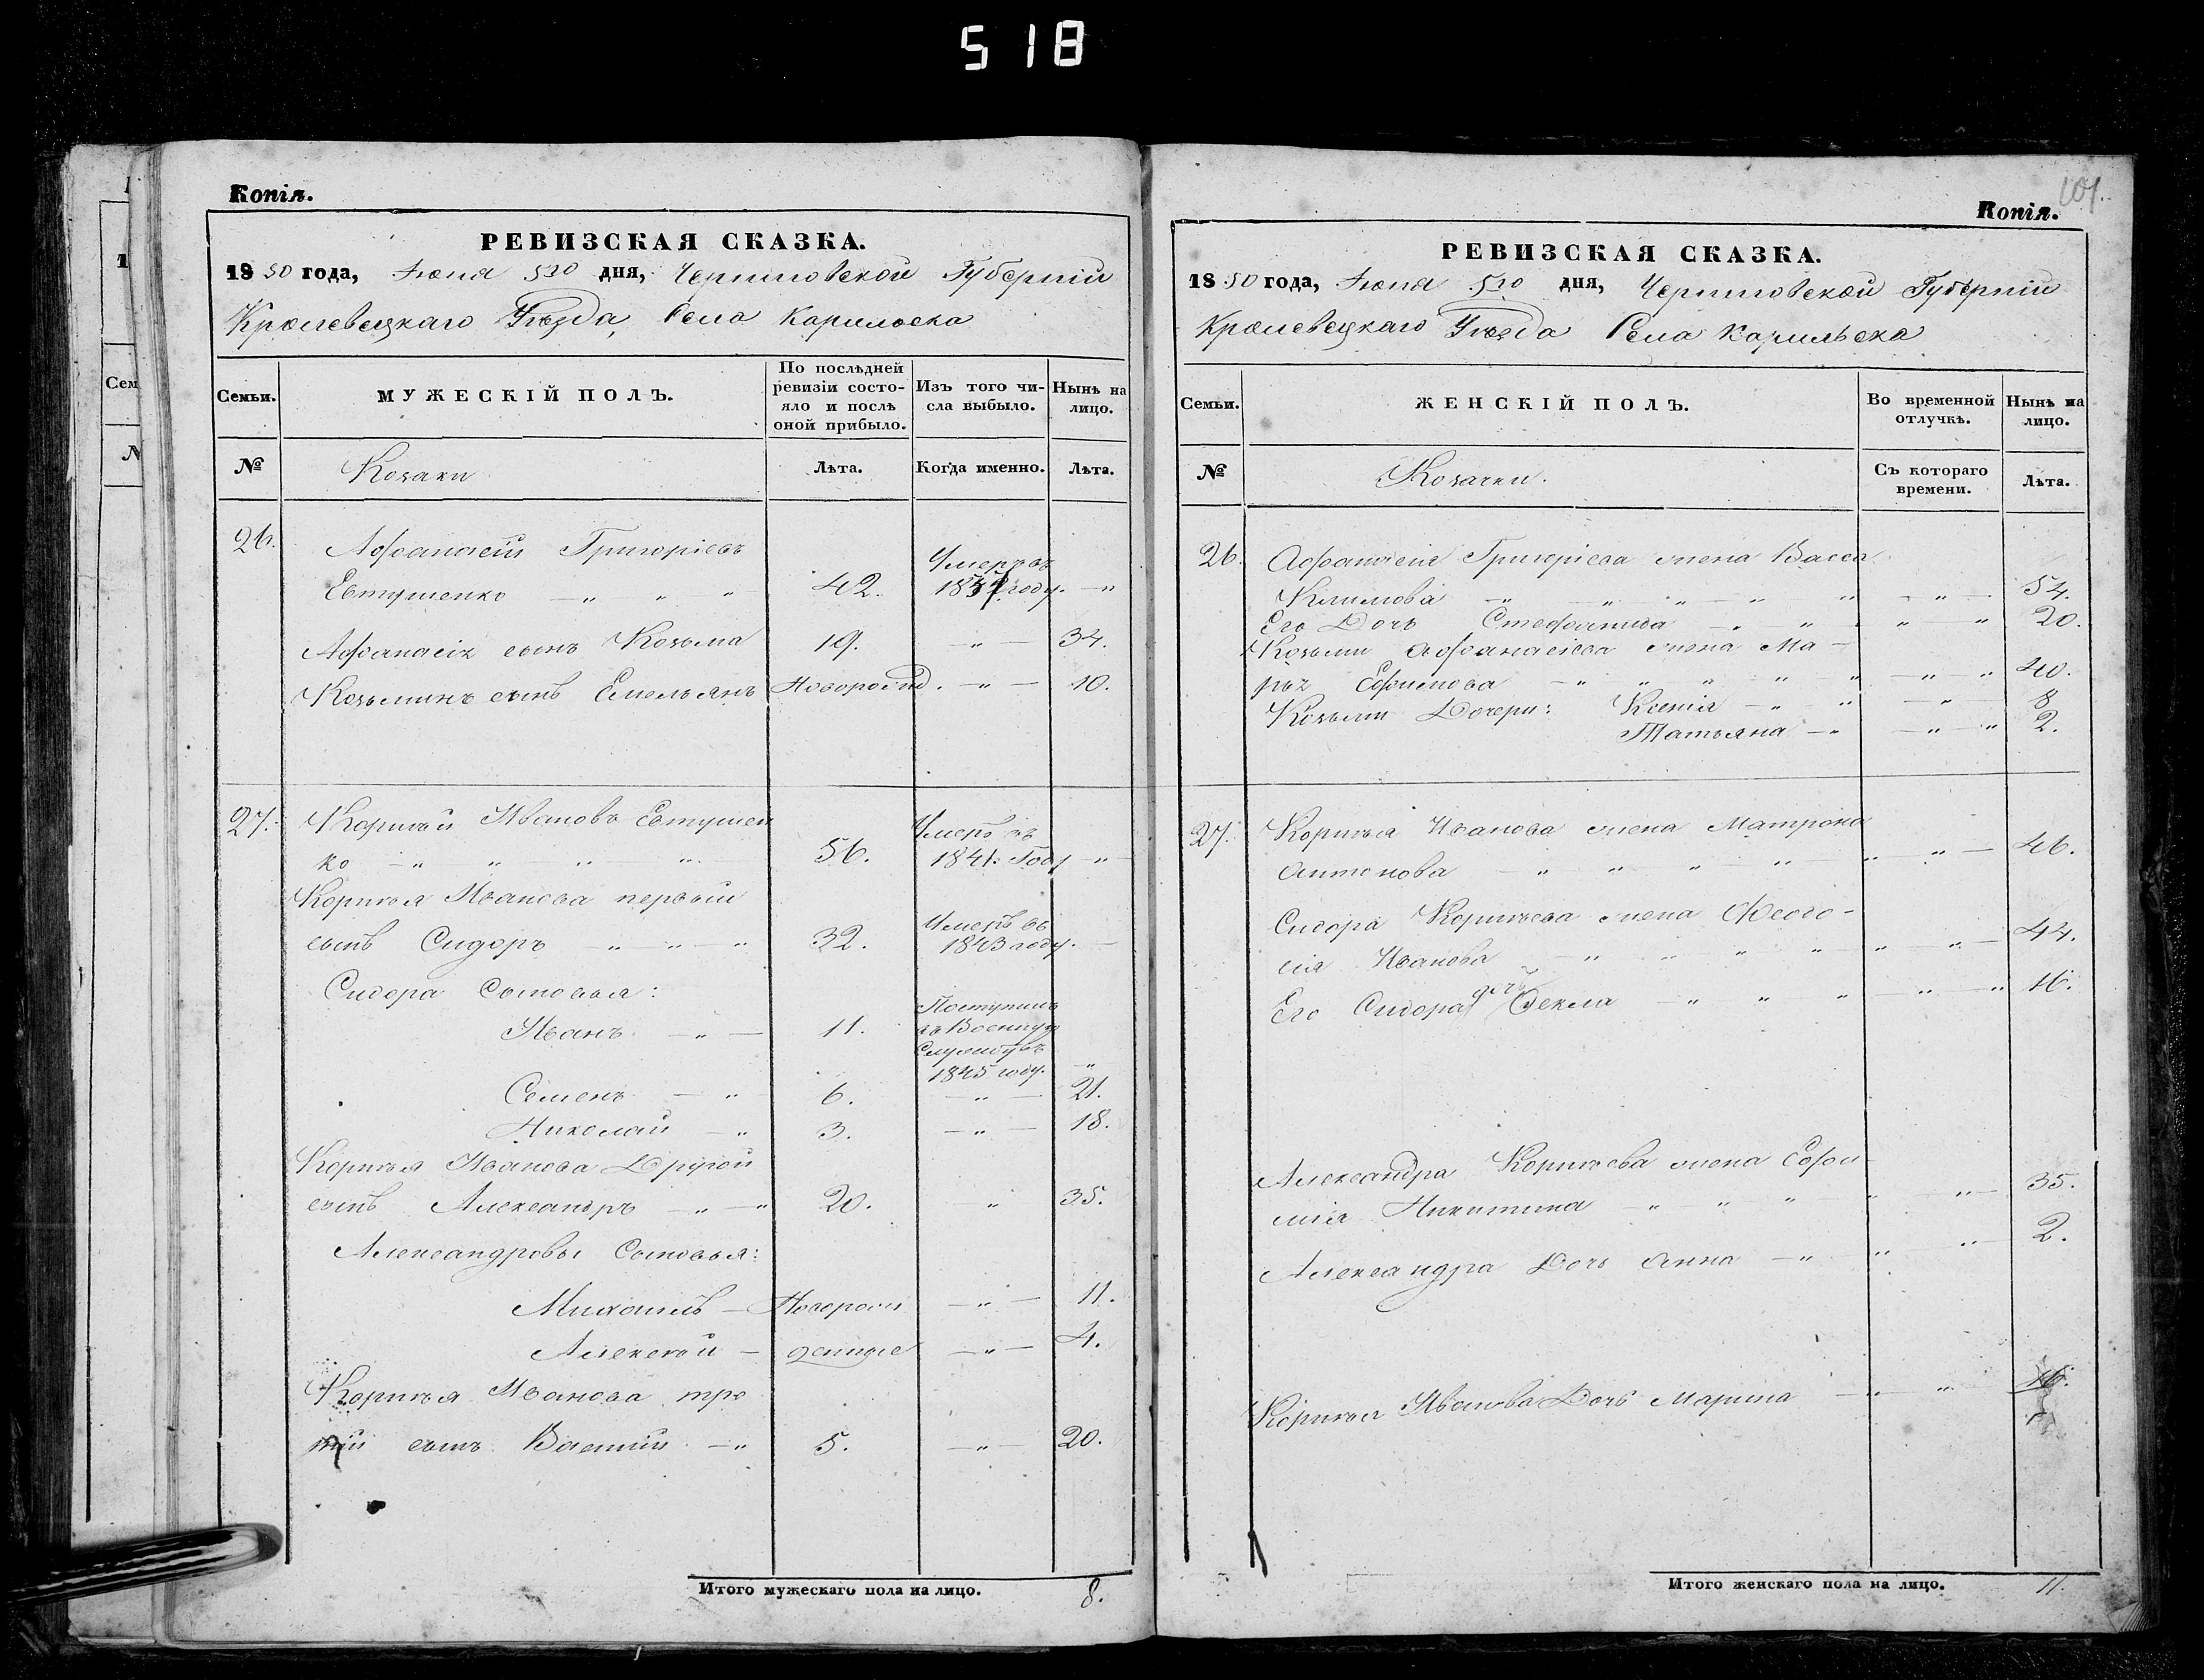 518
Копія.
РЕВИЗСКАЯ СКАЗКА.
1850 года, Іюня 5го дня, Черниговской Губерніи
Кролевецкаго Уѣзда, Села Карильска
Семьи.
МУЖЕСКІЙ ПОЛЪ.
По послѣдней ревизіи состояло и послѣ оной прибыло.
Изъ того числа выбыло.
Нынѣ на лицо.
№
Козаки
Лѣта.
Когда именно.
Лѣта.
26. Афанасій Григоріевъ
Евтушенко — " " " 42. Умеръ въ году. — "
Афанасія сынъ Козьма 19. — " — 34.
Козьминъ сынъ Емельянъ Новорожд. — " — 10.
27. Корнѣй Ивановъ Евтушен
ко — " " " " 56. Умеръ въ 1841. Году — " —
Корнѣя Иванова первый
сынъ Сидоръ — " — " — " 32. Умеръ въ 1843 году. —
Сидора Сыновья:
Иванъ — " — 11. Поступилъ въ Военную Службу въ 1845 году. "
Семенъ — " 6. — " — 21.
Николай — " 3. — " — 18.
Корнѣя Иванова Другой
сынъ Александръ — " — " 20. " 35.
Александровы Сыновья:
Михаилъ — Новорож — " — 11.
Алексѣй — денные — " — 4.
Корнѣя Иванова тре
тій сынъ Василій — " 5. — " — 20.
Итого мужескаго пола на лицо. 8.
101.
Копія.
РЕВИЗСКАЯ СКАЗКА.
1850 года, Іюня 5го дня, Черниговской Губерніи
Кролевецкаго Уѣзда Села Карильска
Семьи.
ЖЕНСКІЙ ПОЛЪ.
Во временной отлучкѣ.
Нынѣ на лицо.
№
Козачки.
Съ котораго времени.
Лѣта.
26. Афанасія Григоріева жена Васса
Климова — " " " " " — " — 54.
Его Дочь Стефанида — " " " " 20.
Козьмы Афанасіева жена Ма-
рья Ефимова — " " " " " — " — " 40.
Козьмы Дочери: Ксенія — " " — " — 8
Татьяна — " — " — " 2.
27. Корнѣя Иванова жена Матрона
Антонова — " " " " " " — 46.
Сидора Корнѣева жена Феодо-
сія Иванова — " " " " " " — 44.
Его Сидора дочь Фекла " " " — " — " 16.
Александра Корнѣева жена Ефи-
мія Никитина — " " " " " — 35.
Александра Дочь Анна — " " " 2.
Корнѣя Иванова Дочь Марина — " "
Итого женскаго пола на лицо. 11.